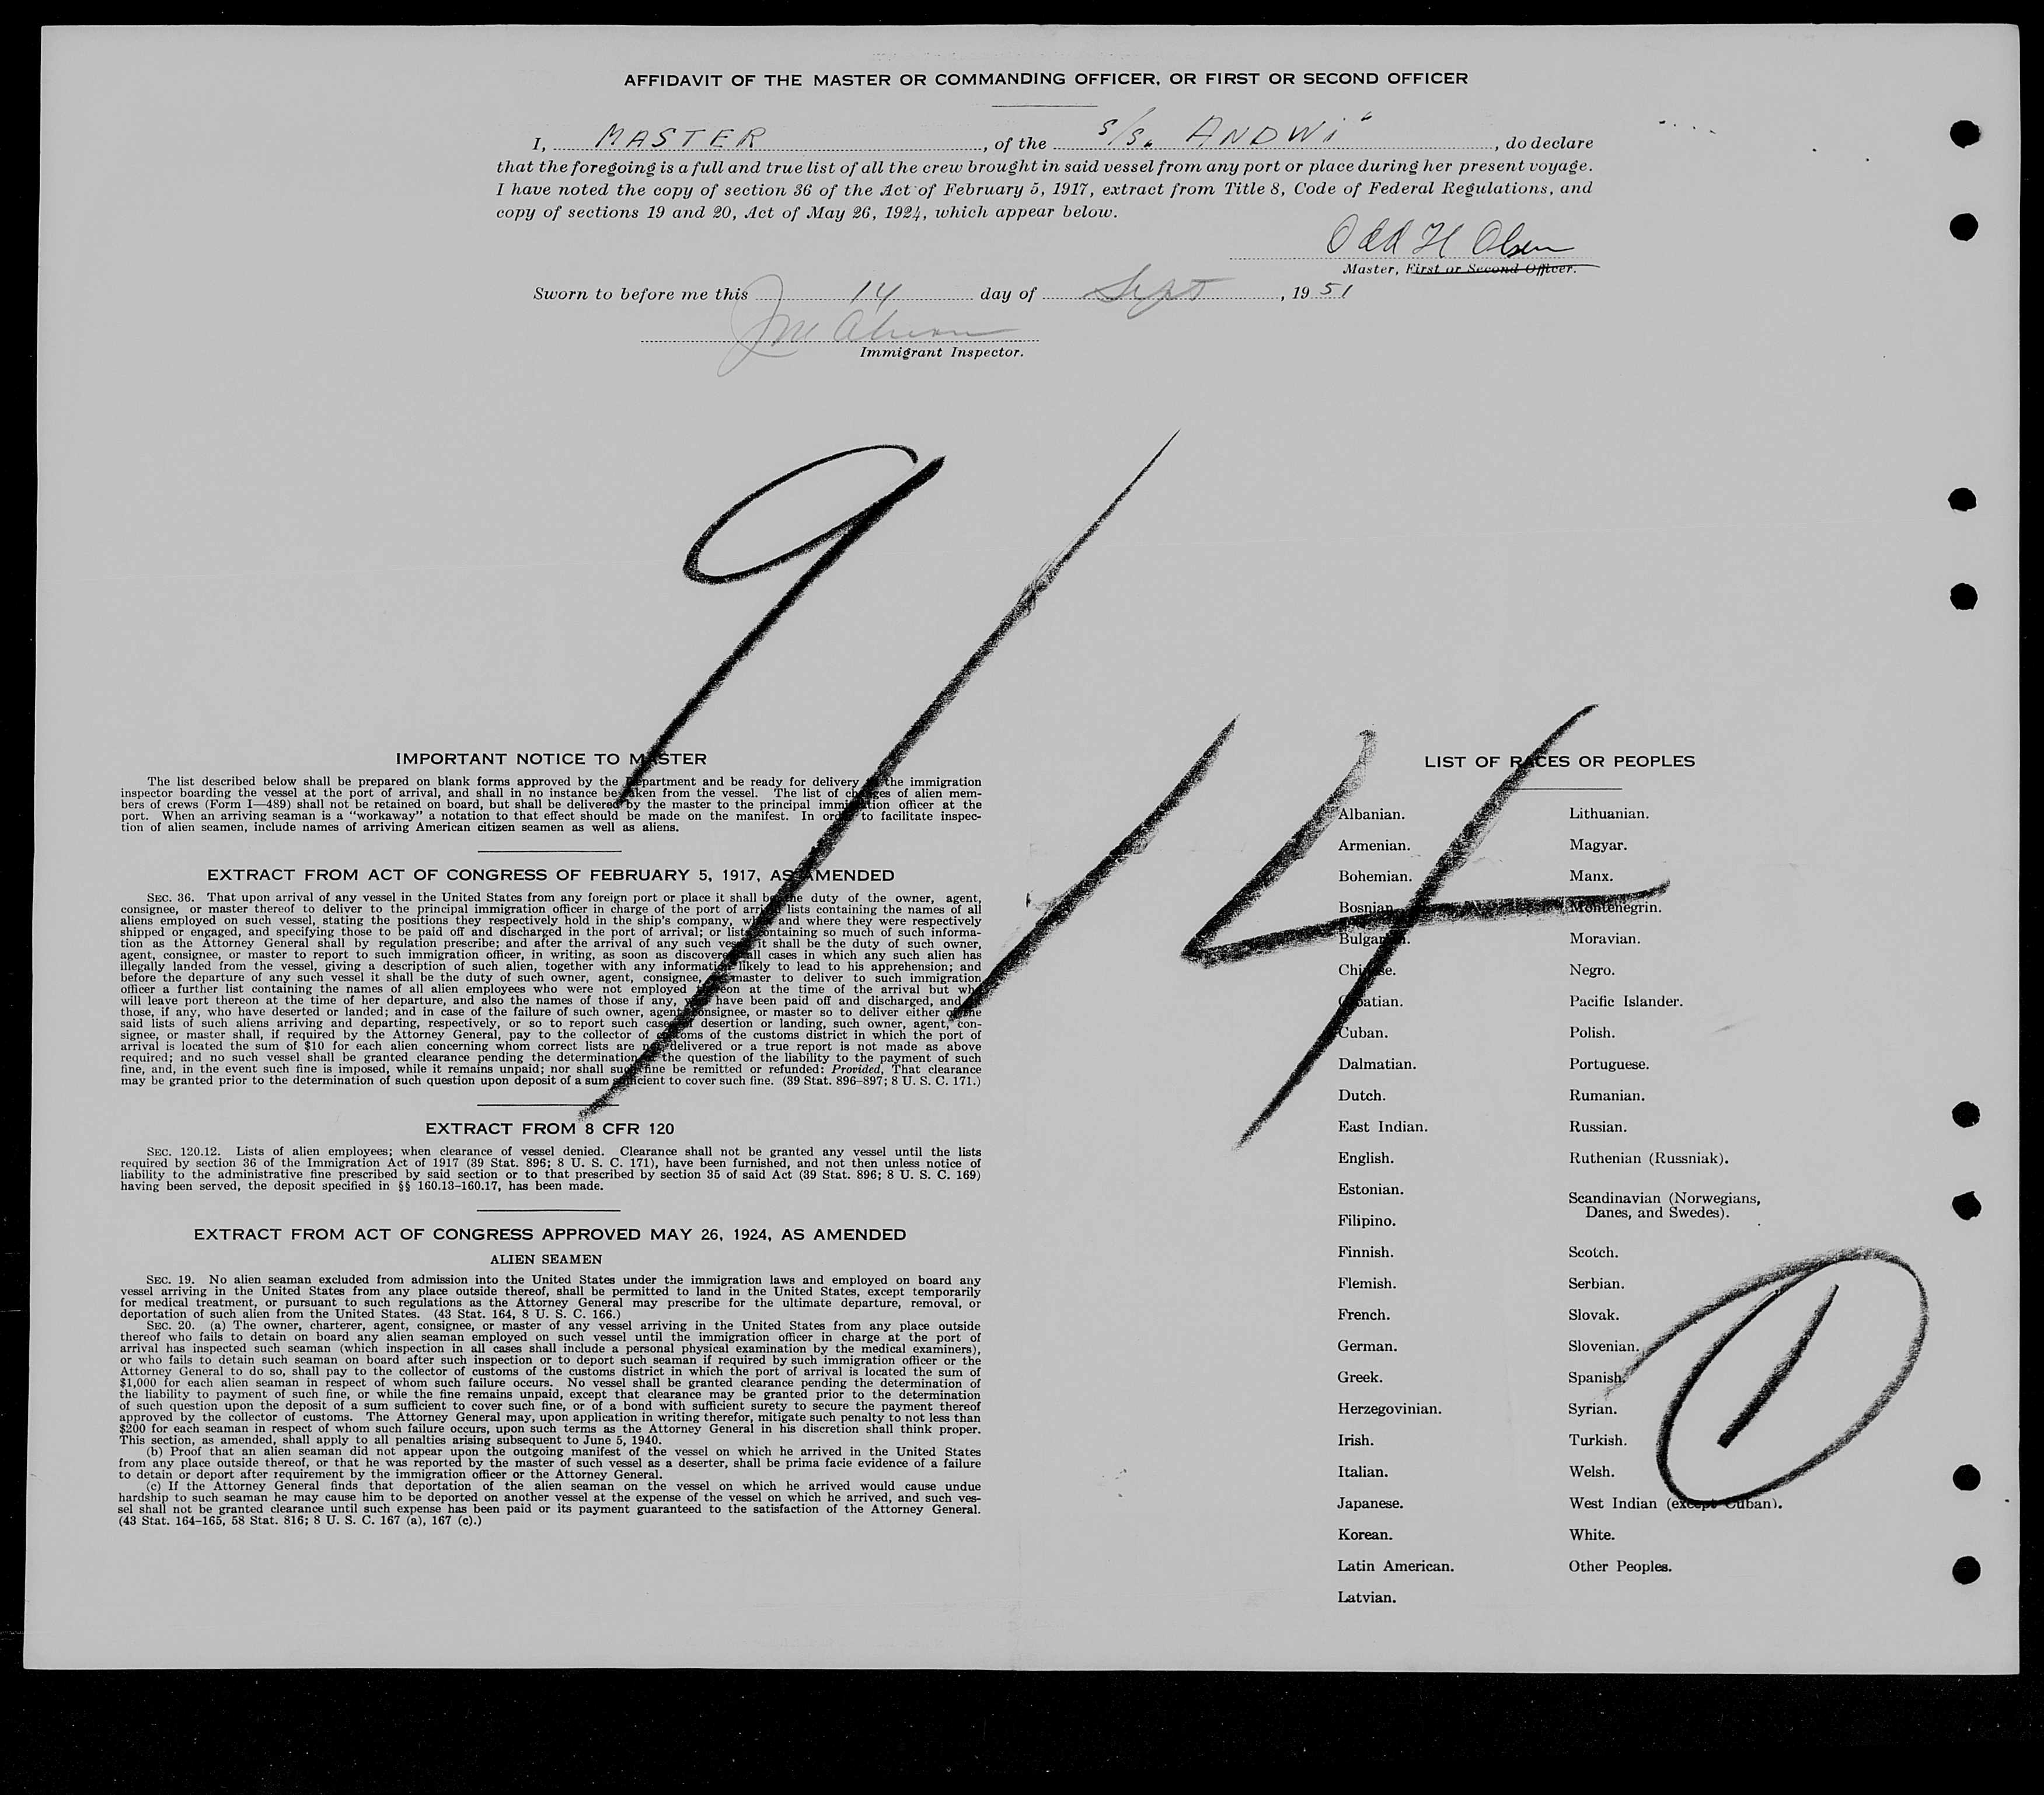 AFFIDAVIT OF THE MASTER OR COMMANDING OFFICER, OR FIRST OR SECOND OFFICER
I, MASTER, of the S/S. ANDWI", do declare
that the foregoing is a full and true list of all the crew brought in said vessel from any port or place during her present voyage.
I have noted the copy of section 36 of the Act of February 5, 1917, extract from Title 8, Code of Federal Regulations, and
copy of sections 19 and 20, Act of May 26, 1924, which appear below.
Odd H Olsen
Master, First or Second Officer.
Sworn to before me this 14 day of Sept, 1951
Immigrant Inspector.
9/14
IMPORTANT NOTICE TO MASTER
The list described below shall be prepared on blank forms approved by the Department and be ready for delivery to the immigration
inspector boarding the vessel at the port of arrival, and shall in no instance be taken from the vessel. The list of changes of alien mem-
bers of crews (Form I—489) shall not be retained on board, but shall be delivered by the master to the principal immigration officer at the
port. When an arriving seaman is a "workaway" a notation to that effect should be made on the manifest. In order to facilitate inspec-
tion of alien seamen, include names of arriving American citizen seamen as well as aliens.
EXTRACT FROM ACT OF CONGRESS OF FEBRUARY 5, 1917, AS AMENDED
SEC. 36. That upon arrival of any vessel in the United States from any foreign port or place it shall be the duty of the owner, agent,
consignee, or master thereof to deliver to the principal immigration officer in charge of the port of arrival lists containing the names of all
aliens employed on such vessel, stating the positions they respectively hold in the ship's company, when and where they were respectively
shipped or engaged, and specifying those to be paid off and discharged in the port of arrival; or lists containing so much of such informa-
tion as the Attorney General shall by regulation prescribe; and after the arrival of any such vessel it shall be the duty of such owner,
agent, consignee, or master to report to such immigration officer, in writing, as soon as discovered, all cases in which any such alien has
illegally landed from the vessel, giving a description of such alien, together with any information likely to lead to his apprehension; and
before the departure of any such vessel it shall be the duty of such owner, agent, consignee, or master to deliver to such immigration
officer a further list containing the names of all alien employees who were not employed thereon at the time of the arrival but who
will leave port thereon at the time of her departure, and also the names of those if any, who have been paid off and discharged, and of
those, if any, who have deserted or landed; and in case of the failure of such owner, agent, consignee, or master so to deliver either of the
said lists of such aliens arriving and departing, respectively, or so to report such cases of desertion or landing, such owner, agent, con-
signee, or master shall, if required by the Attorney General, pay to the collector of customs of the customs district in which the port of
arrival is located the sum of $10 for each alien concerning whom correct lists are not delivered or a true report is not made as above
required; and no such vessel shall be granted clearance pending the determination of the question of the liability to the payment of such
fine, and, in the event such fine is imposed, while it remains unpaid; nor shall such fine be remitted or refunded: Provided, That clearance
may be granted prior to the determination of such question upon deposit of a sum sufficient to cover such fine. (39 Stat. 896-897; 8 U. S. C. 171.)
EXTRACT FROM 8 CFR 120
SEC. 120.12. Lists of alien employees; when clearance of vessel denied. Clearance shall not be granted any vessel until the lists
required by section 36 of the Immigration Act of 1917 (39 Stat. 896; 8 U. S. C. 171), have been furnished, and not then unless notice of
liability to the administrative fine prescribed by said section or to that prescribed by section 35 of said Act (39 Stat. 896; 8 U. S. C. 169)
having been served, the deposit specified in §§ 160.13-160.17, has been made.
EXTRACT FROM ACT OF CONGRESS APPROVED MAY 26, 1924, AS AMENDED
ALIEN SEAMEN
SEC. 19. No alien seaman excluded from admission into the United States under the immigration laws and employed on board any
vessel arriving in the United States from any place outside thereof, shall be permitted to land in the United States, except temporarily
for medical treatment, or pursuant to such regulations as the Attorney General may prescribe for the ultimate departure, removal, or
deportation of such alien from the United States. (43 Stat. 164, 8 U. S. C. 166.)
SEC. 20. (a) The owner, charterer, agent, consignee, or master of any vessel arriving in the United States from any place outside
thereof who fails to detain on board any alien seaman employed on such vessel until the immigration officer in charge at the port of
arrival has inspected such seaman (which inspection in all cases shall include a personal physical examination by the medical examiners),
or who fails to detain such seaman on board after such inspection or to deport such seaman if required by such immigration officer or the
Attorney General to do so, shall pay to the collector of customs of the customs district in which the port of arrival is located the sum of
$1,000 for each alien seaman in respect of whom such failure occurs. No vessel shall be granted clearance pending the determination of
the liability to payment of such fine, or while the fine remains unpaid, except that clearance may be granted prior to the determination
of such question upon the deposit of a sum sufficient to cover such fine, or of a bond with sufficient surety to secure the payment thereof
approved by the collector of customs. The Attorney General may, upon application in writing therefor, mitigate such penalty to not less than
$200 for each seaman in respect of whom such failure occurs, upon such terms as the Attorney General in his discretion shall think proper.
This section, as amended, shall apply to all penalties arising subsequent to June 5, 1940.
(b) Proof that an alien seaman did not appear upon the outgoing manifest of the vessel on which he arrived in the United States
from any place outside thereof, or that he was reported by the master of such vessel as a deserter, shall be prima facie evidence of a failure
to detain or deport after requirement by the immigration officer or the Attorney General.
(c) If the Attorney General finds that deportation of the alien seaman on the vessel on which he arrived would cause undue
hardship to such seaman he may cause him to be deported on another vessel at the expense of the vessel on which he arrived, and such ves-
sel shall not be granted clearance until such expense has been paid or its payment guaranteed to the satisfaction of the Attorney General.
(43 Stat. 164-165, 58 Stat. 816; 8 U. S. C. 167 (a), 167 (c).)
LIST OF RACES OR PEOPLES
Albanian.
Armenian.
Bohemian.
Bosnian.
Bulgarian.
Chinese.
Croatian.
Cuban.
Dalmatian.
Dutch.
East Indian.
English.
Estonian.
Filipino.
Finnish.
Flemish.
French.
German.
Greek.
Herzegovinian.
Irish.
Italian.
Japanese.
Korean.
Latin American.
Latvian.
Lithuanian.
Magyar.
Manx.
Montenegrin.
Moravian.
Negro.
Pacific Islander.
Polish.
Portuguese.
Rumanian.
Russian.
Ruthenian (Russniak).
Scandinavian (Norwegians,
Danes, and Swedes).
Scotch.
Serbian.
Slovak.
Slovenian.
Spanish.
Syrian.
Turkish.
Welsh.
West Indian (except Cuban).
White.
Other Peoples.
1